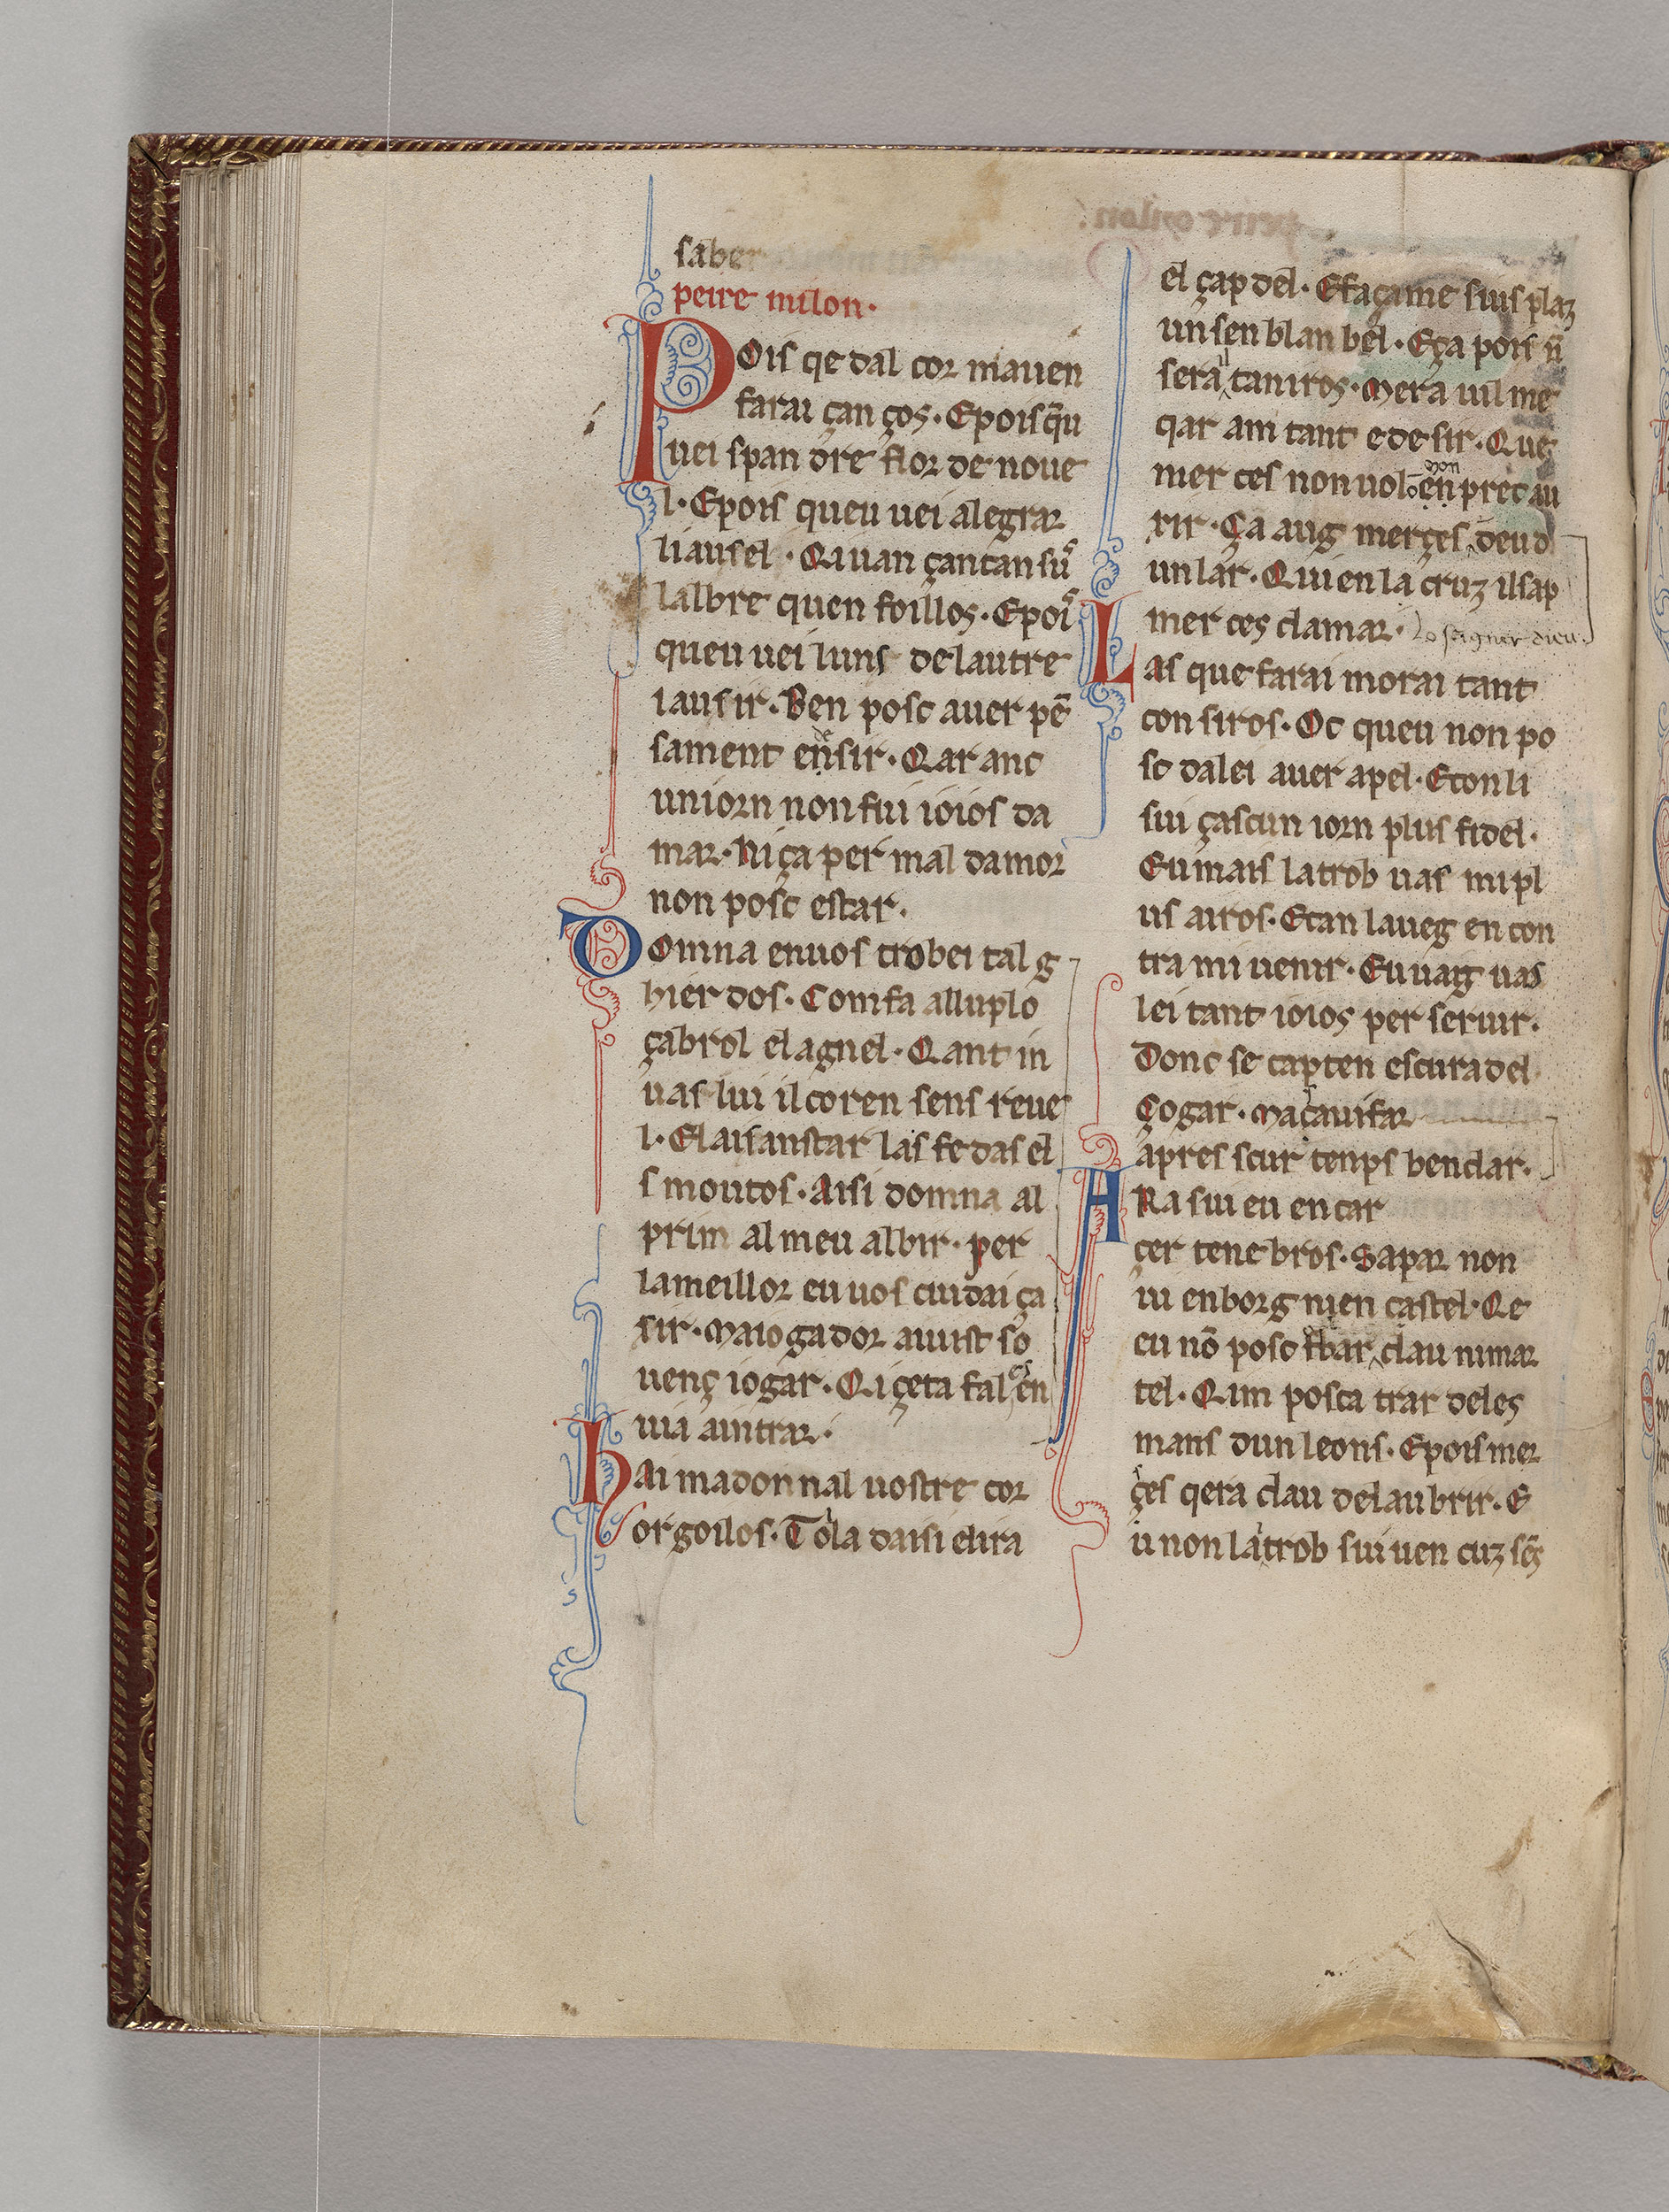 saber
peire milon·
POis qe dal cor mauen
farai çan ços· E pois q̄u
uei span dre flor de noue
l· E pois queu uei alegrar
li ausel· Qi uan çantan sus
lalbre quen foillos· E pois
queu uei luns de lautre
iausir· Ben posc auer pē
sament en de sir· Qar anc
un iorn non fui ioios da
mar· Ni ça per mal damor
non posc estar·
DOmna enuos trobei tal g
hier dos· Com fa alluplo
çabrol el agnel· Qant in
uas lui il coren sens reue
l· El aisanstar las fe das el
s moutos· Aisi domna al
prim al meu albir· per
la meillor eu uos cuidai ça
sir· Maiogador auuist so
uenç iogar· Qi çeta fal es en
uia aintrar·
hAi madonnal uostre cor
orgoilos· Tola daisi elira
el çap del· E façame sius plaz
un sen blan bel· E ça pois n̄
sera l taniros· Mera uil me
qar am tant e de sir· Que
mer ces non uol non en prec au
rir· Ça aug merçes deu d
un lar· Qui en la cruz il sap
mer ces clamar· Lo segner dieu
LAs que farai morai tant
con siros· Oc queu non po
sc dalei auer apel· E con li
sui çascun iorn plus fidel·
Eu mais la trob uas mi pl
us airos· E can laueg en con
tra mi uenir· Eu uaig uas
lei tant ioios per seruir·
Donc se capten escura del
çogar· Maçauifar
apres scur tenps ben clar·
ARa sui eu en car
cer tene bros· Sapar non
ui en borg nien castel· Qe
eu nō posc clau nimar
tel· Qim posca trar de les
mans dun leons· E pois mer
çes qera clau del au brir· E
u non la i trob sui uen cuz sēs